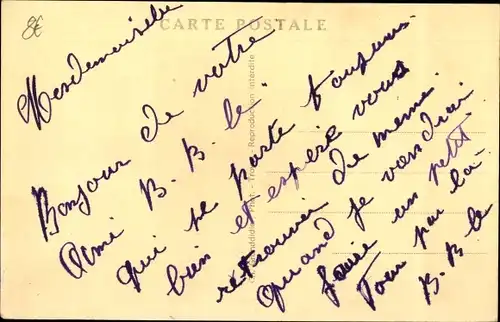 8€
CARTE POSTALE
Mesdemoiselle
Bonjour de votre
Ami B. B. le
qui se porte toujours
bien et espère vous
retrouver de même.
Quand je viendrai
faire un petit
Tour par là-
B. B. le
Reproduction interdite